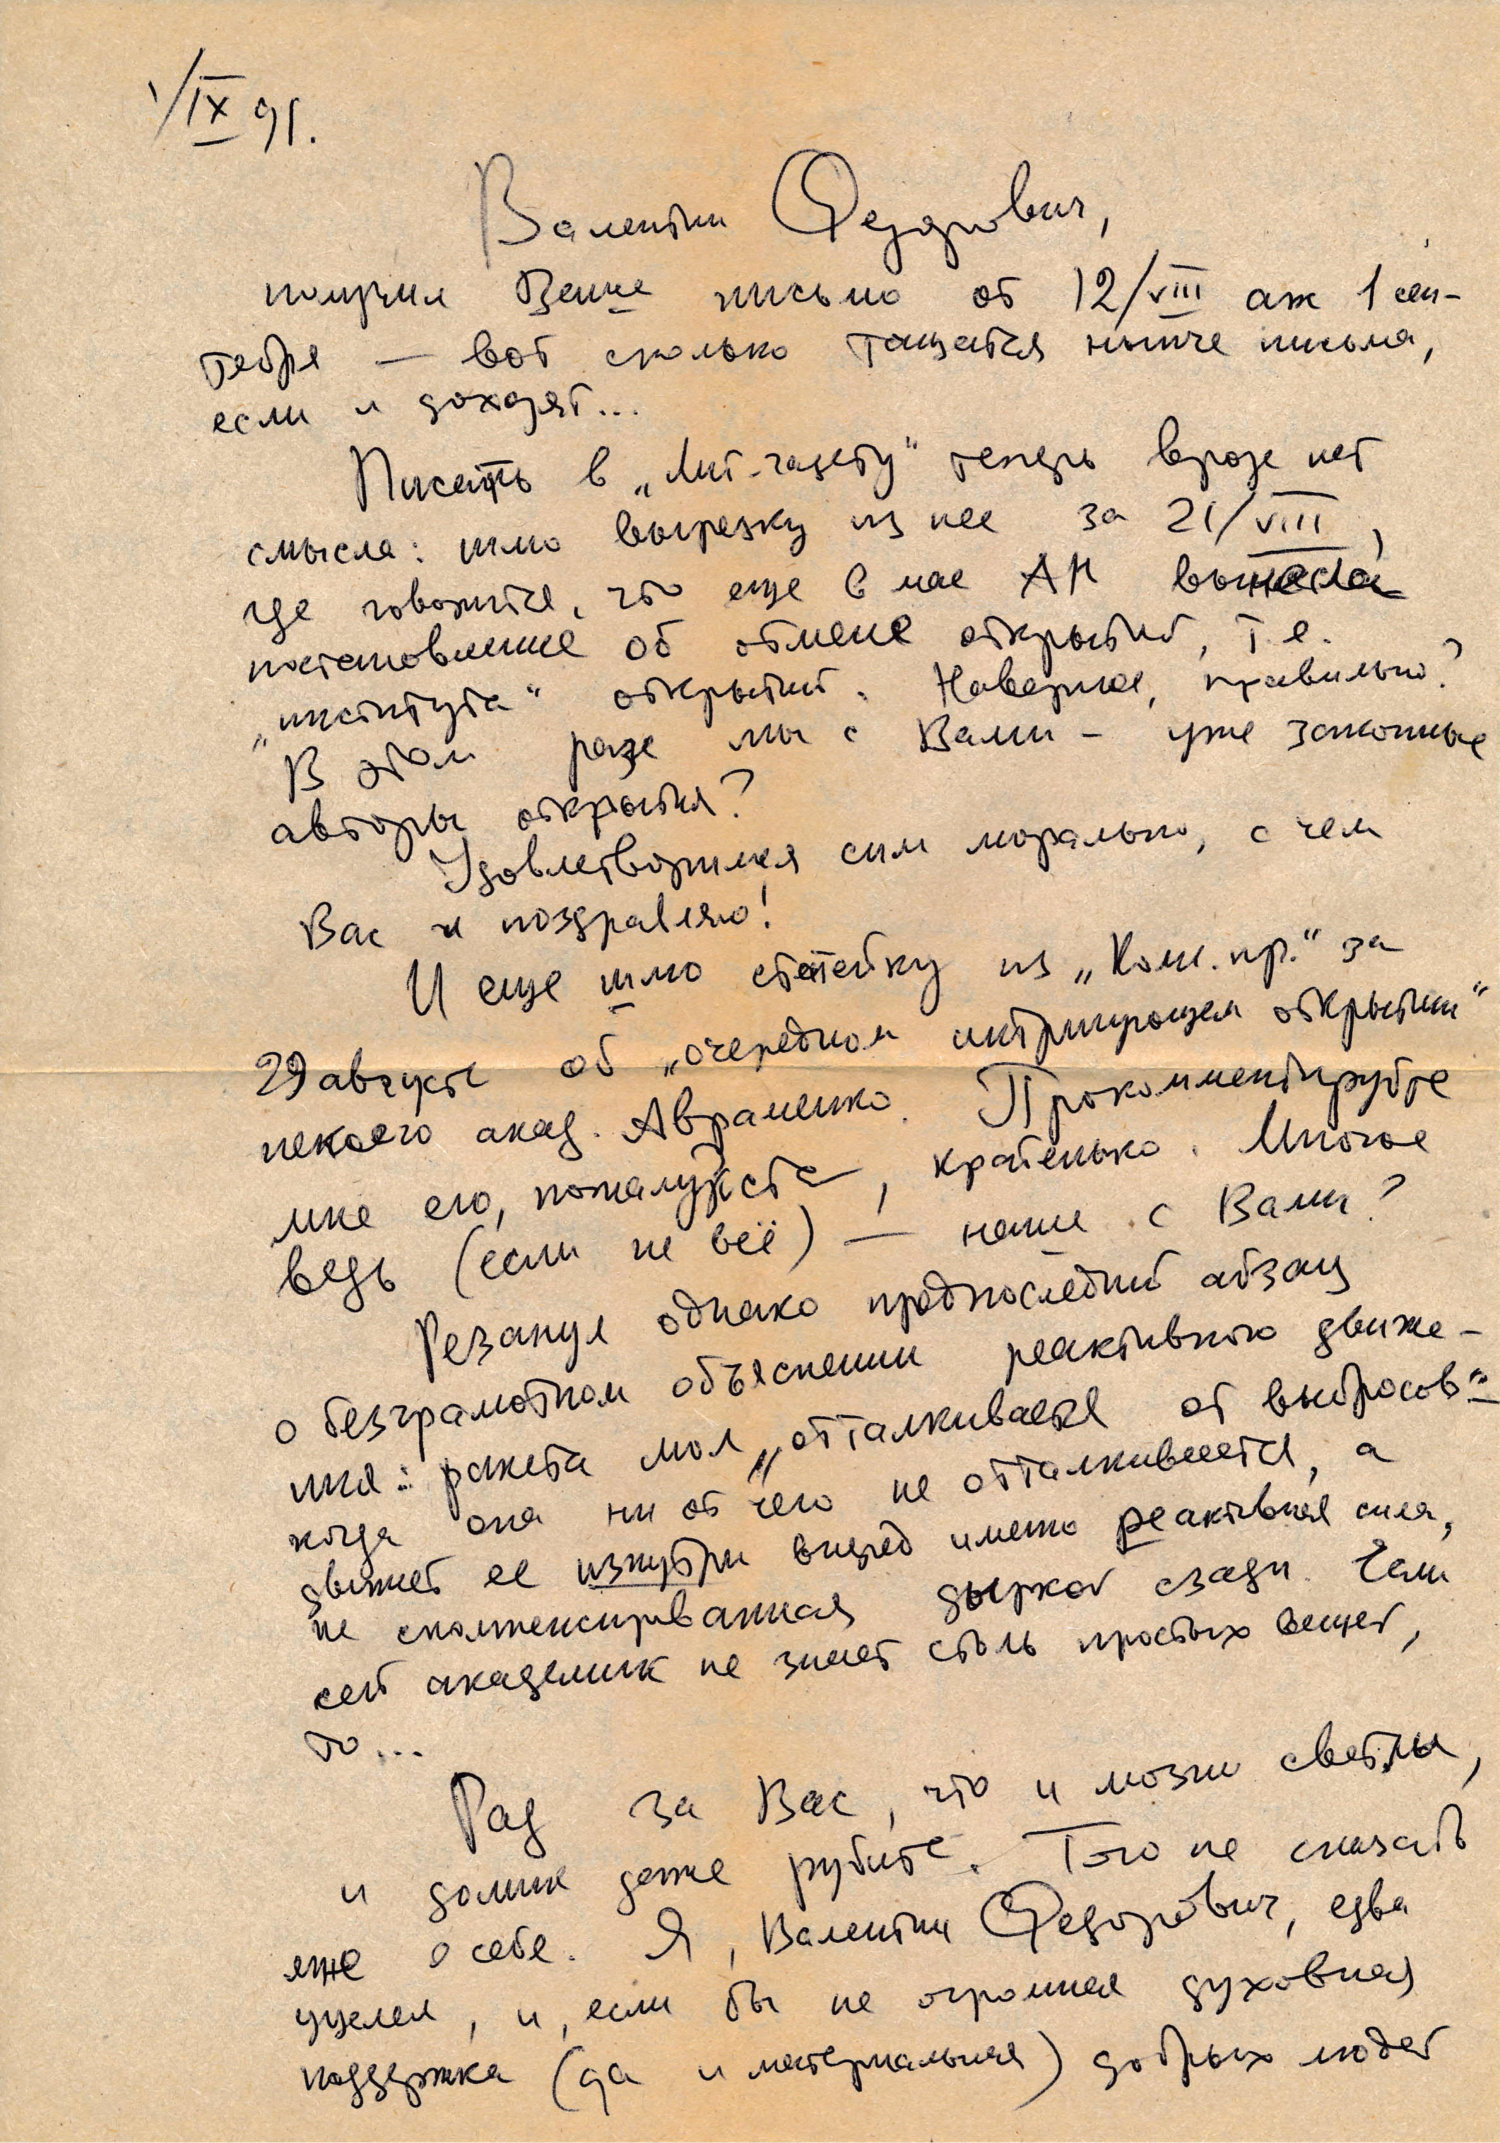 1/IX 91.
Валентин Федорович,
получил Ваше письмо от 12/VIII аж 1 сен-
тября — вот сколько тащатся нынче письма,
если и доходят...
Писать в „Лит-газету“ теперь вроде нет
смысла: шлю вырезку из нее за 21/VIII,
где говорится, что еще в мае АН вынесла
постановление об отмене открытий, т.е.
„института“ открытий. Наверное, правильно?
В этом разе мы с Вами – уже законные
авторы открытия?
Удовлетворимся сим морально, с чем
Вас и поздравляю!
И еще шлю статейку из „Комс. пр.“ за
29 августа об „очередном интригующем открытии“
некоего акад. Авраменко. Прокомментируйте
мне его, пожалуйста, кратенько. Многое
ведь (если не всё) — наше с Вами?
Резанул однако предпоследний абзац
о безграмотном объяснении реактивного движе-
ния: ракета мол „отталкивается от выбросов“ –
когда она ни от чего не отталкивается, а
движет ее изнутри вперед именно реактивная сила,
не скомпенсированная дыркой сзади. Если
сей академик не знает столь простых вещей,
то...
Рад за Вас, что и мозги светлы,
и домик даже рубите. Того не сказать
уже о себе. Я, Валентин Федорович, едва
уцелел, и, если бы не огромная духовная
поддержка (да и материальная) добрых людей